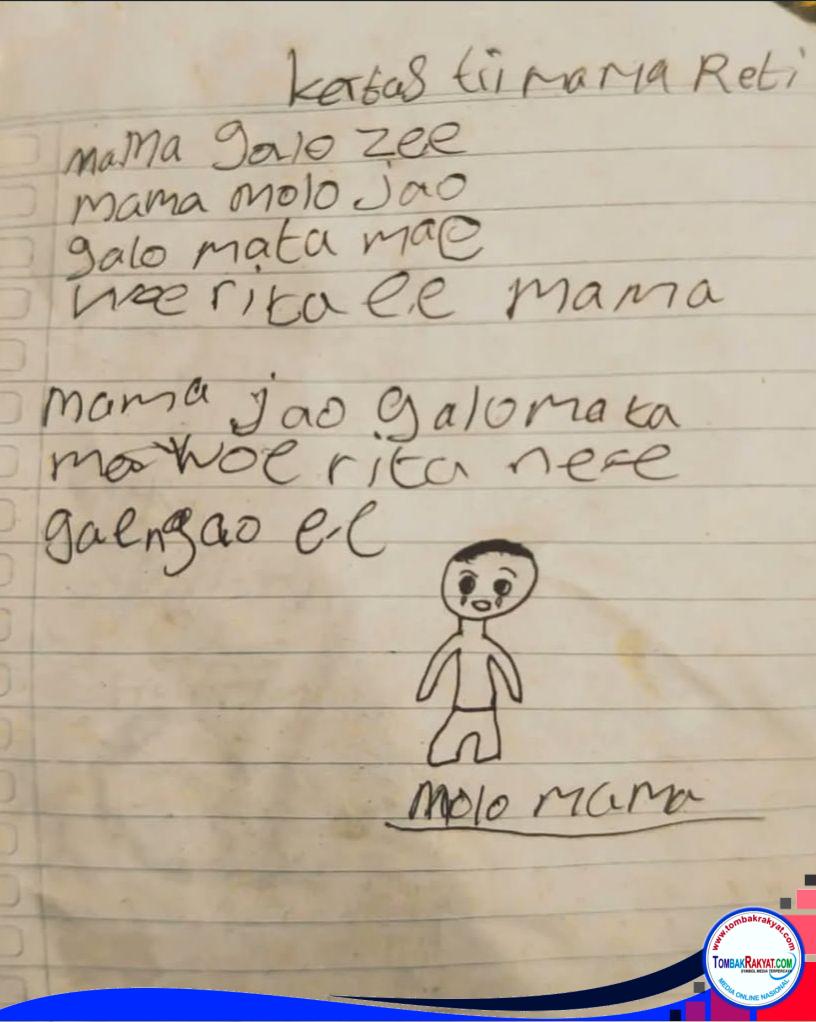 kertas tii mama Reti
mama galo zee
mama molo jao
galo mata mae
woe rita ee mama
mama jao galo mata
mae woe rita ne-e
gae ngao e-e
molo mama
www.tombakrakyat.com
TOMBAKRAKYAT.COM
SYMBOL MEDIA TERPERCAYA
MEDIA ONLINE NASIONAL